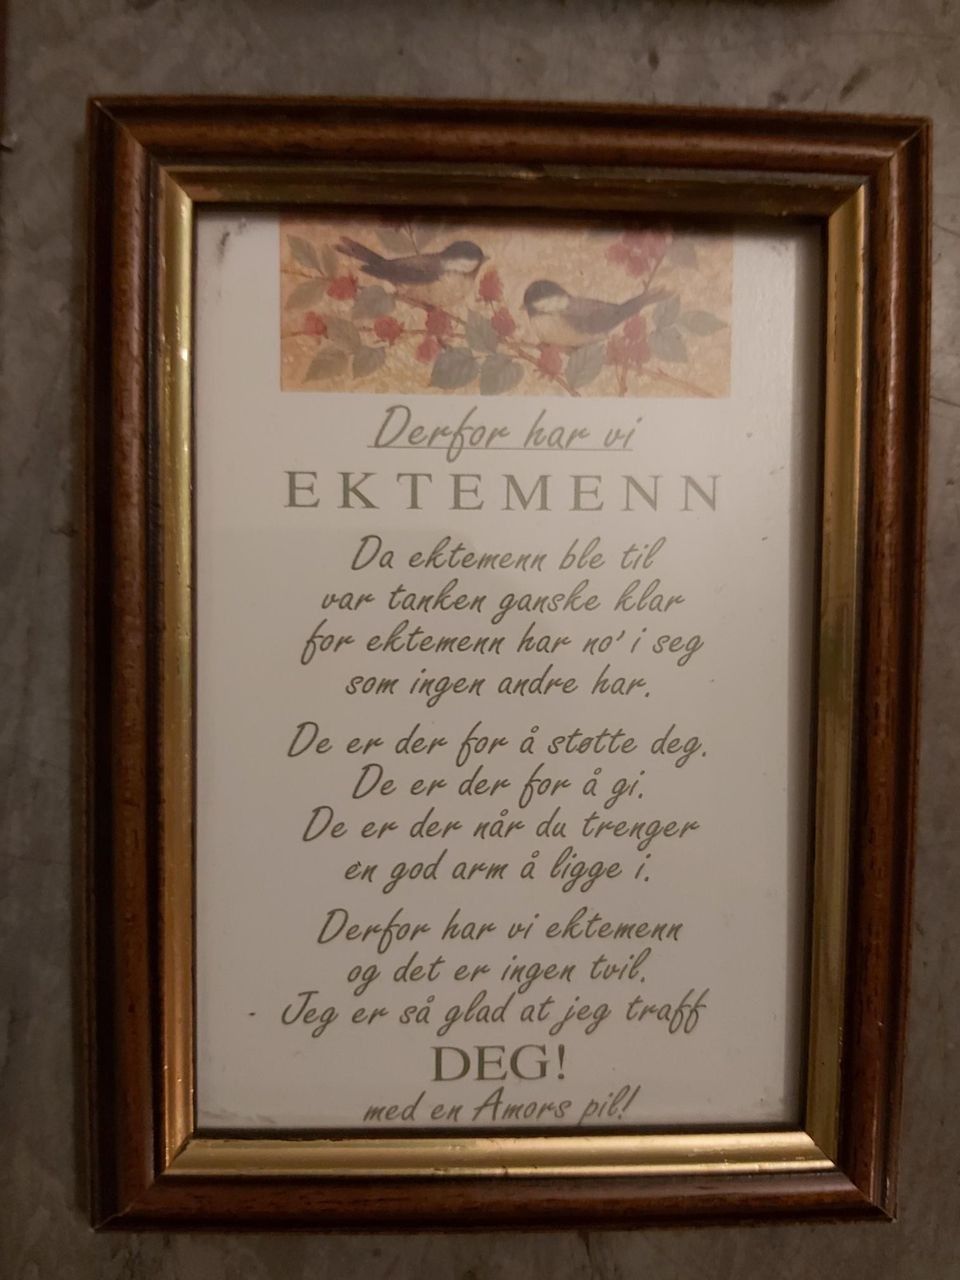 Derfor har vi
EKTEMENN
Da ektemenn ble til
var tanken ganske klar
for ektemenn har no' i seg
som ingen andre har.
De er der for å støtte deg.
De er der for å gi.
De er der når du trenger
èn god arm å ligge i.
Derfor har vi ektemenn
og det er ingen tvil.
- Jeg er så glad at jeg traff
DEG!
med en Amors pil!